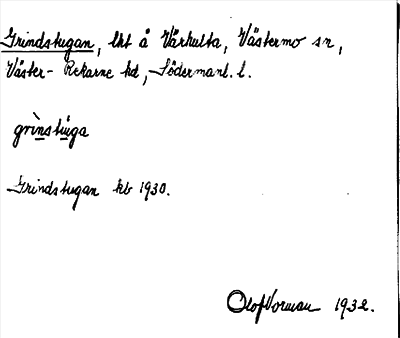 Grindstugan, lht å Vårhulta, Västermo sn,
Väster-Rekarne hd, Södermanl. l.
grìnstúga
Grindstugan kb 1930.
Olof Vorman 1932.